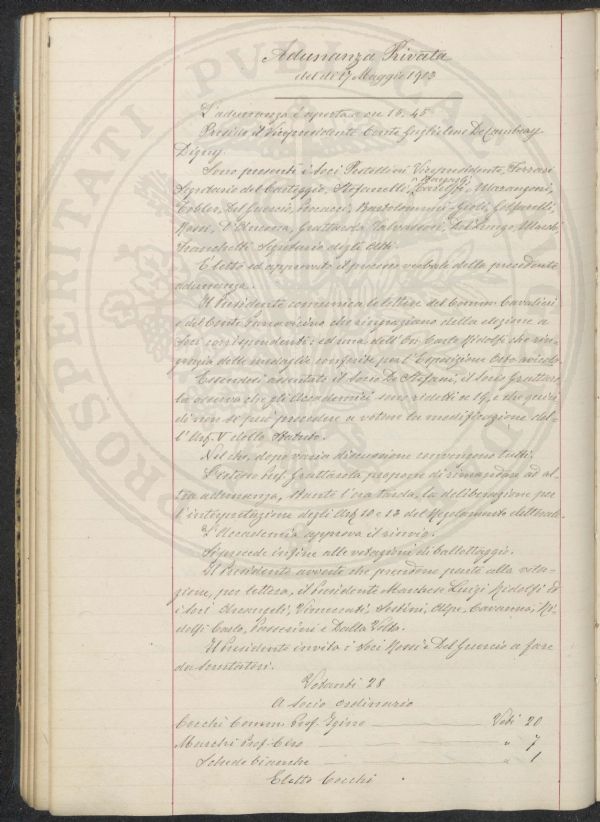 Adunanza Privata
del dì 17 Maggio 1903
L'adunanza è aperta a ore 15.45
Presiede il Vicepresidente Conte Guglielmo De Cambray
Digny.
Sono presenti i Soci Pestellini Vicepresidente, Ferrari
Segretario del Carteggio, Stefanelli, Caruso, Marangoni,
Tobler, Del Guercio, Bartolommei-Gioli, Gasparelli,
Rossi, D'Ancona, Grattarola, Salvadori, Del Lungo, Marchi
Franchetti Segretario degli Atti.
È letto ed approvato il processo verbale della precedente
adunanza.
Il Presidente comunica le lettere del Comm. Cavalieri
e del Conte che ringraziano della elezione a
Soci corrispondenti; ed una dell'On. Carlo Ridolfi che rin-
grazia delle medaglie conferite per l'Esposizione
Essendosi assentato il Socio De Stefani, il Socio Grattaro-
la osserva che gli Accademici sono ridotti a 19, e che quin-
di non si può procedere a votare la modificazione del-
l'Art. V dello Statuto.
Nel che, dopo varia discussione convennero tutti.
Lo stesso Prof. Grattarola propone di rimandare ad al-
tra adunanza, stante l'ora tarda, la deliberazione per
l'interpretazione degli Art. 10 e 13 del Regolamento elettorale.
L'Accademia approva il rinvio.
Si procede infine alle votazioni di ballottaggio.
Il Presidente avverte che prendono parte alla vota-
zione, per lettera, il Presidente Marchese Luigi Ridolfi ed
i Soci Arcangeli, Vannuccini, Sestini, Alpe, Cavanna, Ri-
dolfi Carlo, Passerini e Dalla Volta.
Il Presidente invita i Soci Rossi e Del Guercio a fare
da scrutatori.
Votanti 28
A Socio ordinario
Cocchi Comm. Prof. Igino Voti 20
Marchi Prof. Ciro " 7
Schede bianche " 1
Eletto Cocchi
PROSPERITATI PVBLICAE